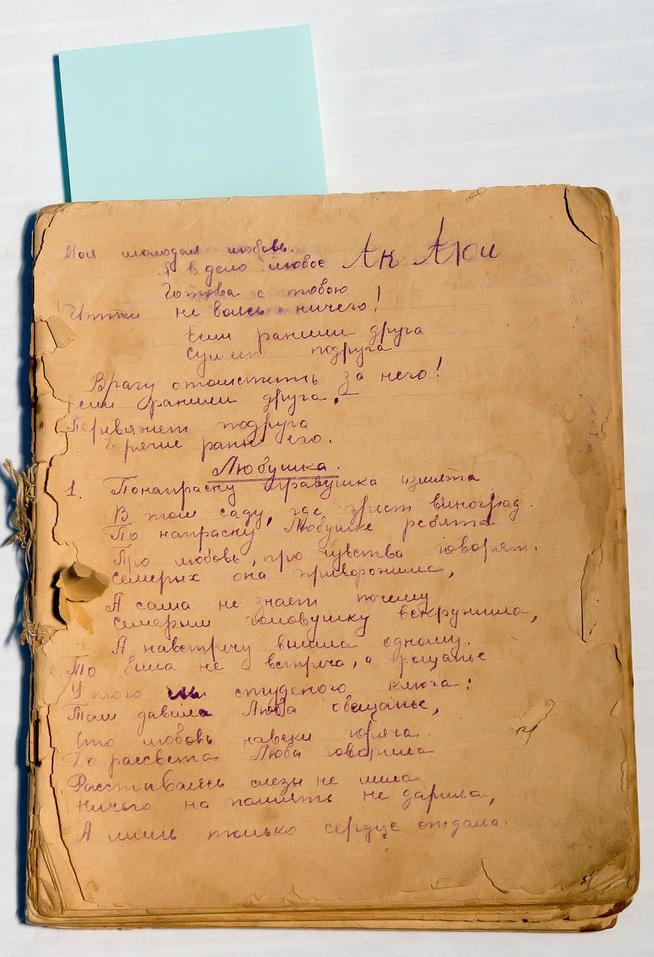 Моя молодая любовь.
Я в дело любое
Ак Аюи
Готова с тобою
Иття не боясь ничего!
Если ранили друга
Сумеет подруга
Врагу отомстить за него!
Если ранили друга,
Перевяжет подруга
Горячие раны его.
Любушка.
1. Понапрасну травушка измята
В том саду, где зреет виноград.
По напрасну Любушке ребята
Про любовь, про чувства говорят.
Семерых она приворожила,
А сама не знает почему
Семерым головушку вскружила,
А навстречу вышла одному.
То была не встреча, а прощанье
У того студеного ключа:
Там давала Люба обещанье,
Что любовь навеки горяча.
До рассвета Люба говорила
Расставаясь слезы не лила
Ничего на память не дарила,
А лишь только сердце отдала.